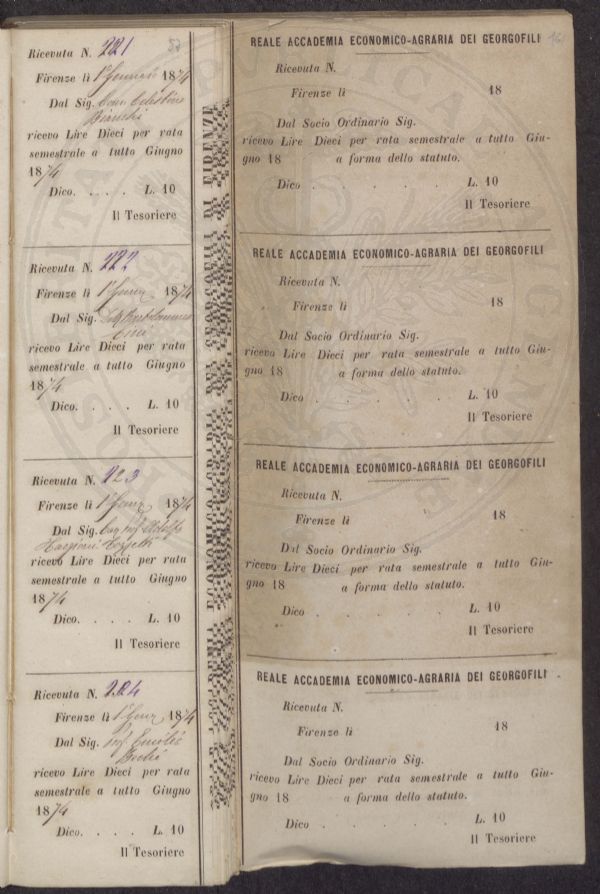 Ricevuta N. 221
Firenze li 1° Gennaio 1874
Dal Sig. Celestino
Bianchi
ricevo Lire Dieci per rata
semestrale a tutto Giugno
1874
Dico. . . . . L. 10
Il Tesoriere
Ricevuta N. 222
Firenze li 1° 1874
Dal Sig.
ricevo Lire Dieci per rata
semestrale a tutto Giugno
1874
Dico. . . . . L. 10
Il Tesoriere
Ricevuta N. 223
Firenze li 1° 1874
Dal Sig. Adolfo
Targioni Tozzetti
ricevo Lire Dieci per rata
semestrale a tutto Giugno
1874
Dico. . . . . L. 10
Il Tesoriere
Ricevuta N. 224
Firenze li 1° 1874
Dal Sig. Emilio
Bechi
ricevo Lire Dieci per rata
semestrale a tutto Giugno
1874
Dico. . . . . L. 10
Il Tesoriere
REALE ACCADEMIA ECONOMICO-AGRARIA DEI GEORGOFILI
Ricevuta N.
Firenze li 18
Dal Socio Ordinario Sig.
ricevo Lire Dieci per rata semestrale a tutto Giu-
gno 18 a forma dello statuto.
Dico . . . . L. 10
Il Tesoriere
REALE ACCADEMIA ECONOMICO-AGRARIA DEI GEORGOFILI
Ricevuta N.
Firenze li 18
Dal Socio Ordinario Sig.
ricevo Lire Dieci per rata semestrale a tutto Giu-
gno 18 a forma dello statuto.
Dico . . . . L. 10
Il Tesoriere
REALE ACCADEMIA ECONOMICO-AGRARIA DEI GEORGOFILI
Ricevuta N.
Firenze li 18
Dal Socio Ordinario Sig.
ricevo Lire Dieci per rata semestrale a tutto Giu-
gno 18 a forma dello statuto.
Dico . . . . L. 10
Il Tesoriere
REALE ACCADEMIA ECONOMICO-AGRARIA DEI GEORGOFILI
Ricevuta N.
Firenze li 18
Dal Socio Ordinario Sig.
ricevo Lire Dieci per rata semestrale a tutto Giu-
gno 18 a forma dello statuto.
Dico . . . . L. 10
Il Tesoriere